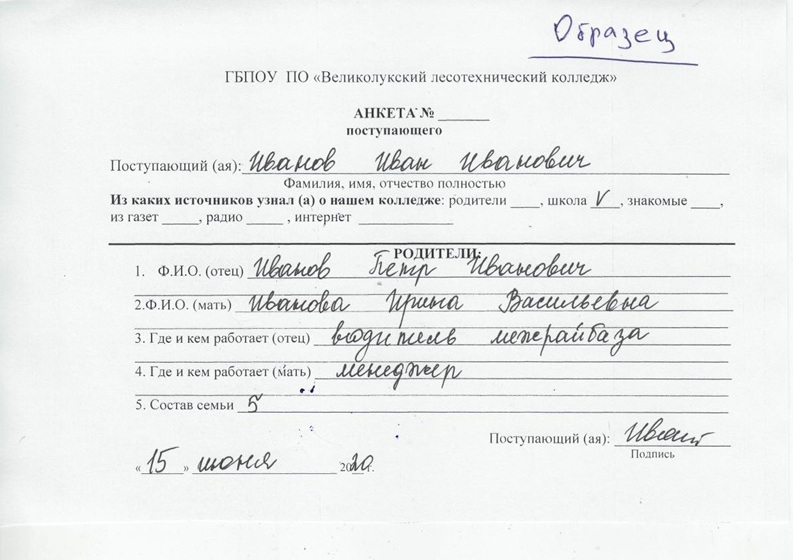 Образец
ГБПОУ ПО «Великолукский лесотехнический колледж»
АНКЕТА № _______
поступающего
Поступающий (ая): Иванов Иван Иванович
Фамилия, имя, отчество полностью
Из каких источников узнал (а) о нашем колледже: родители ____, школа V, знакомые ____,
из газет _____, радио _____ , интернет _____________
РОДИТЕЛИ:
1. Ф.И.О. (отец) Иванов Петр Иванович
2.Ф.И.О. (мать) Иванова Ирина Васильевна
3. Где и кем работает (отец) водитель межрайбаза
4. Где и кем работает (мать) менеджер
5. Состав семьи 5
Поступающий (ая): Иван
Подпись
«15» июня 2020 г.